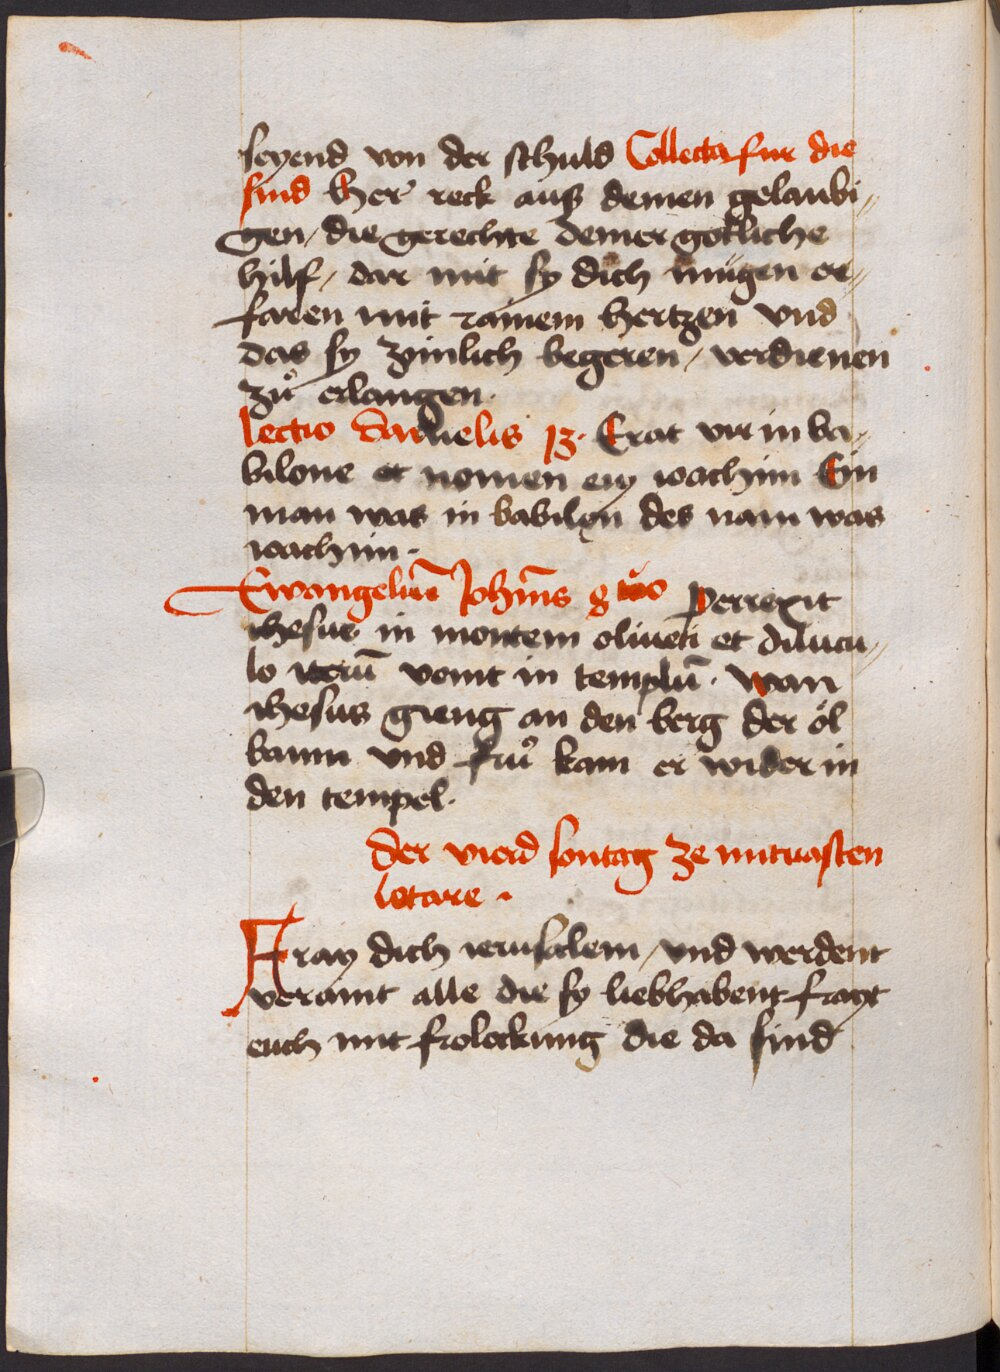 seyend von der schuld Collecta fur die
sind Her reck auß deinen gelaubi„
gen / die gerechte deiner gotliche
hilf / dar mit sy dich mügen er„
faren mit rainem hertzen vnd
das sy zimlich begeren / verdienen
zuͦ erlangen.
lectio danielis 13. Erat vir in ba„
bilone et nomen eiꝰ ioachim Ein
man was in babilon des nam was
ioachim.
Ewangeliū Johīs 8uo Perrexit
ihesus in montem oliueti et dilucu„
lo iterū venit in templū. wan
ihesus gieng an den berg der öl
baum vnd fruͦ kam er wider in
den tempel.
Der vierd sontag ze mituasten
letare.
Fray dich ierusalem / vnd werdent
veraint alle die sy liebhabent frayt
euch mit frolockung die da sind